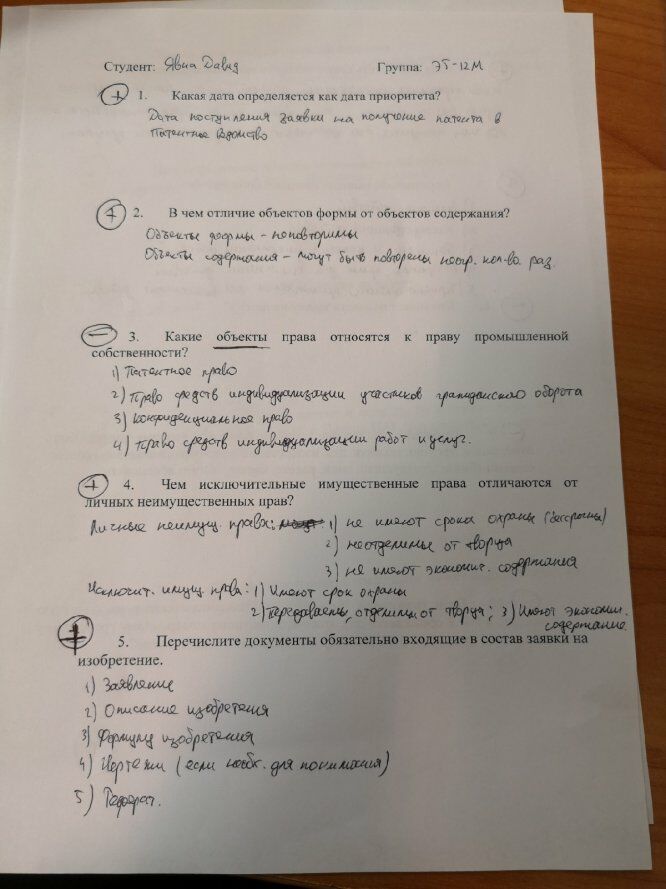 Студент: Явиа Давид Группа: ЭТ-12М
+ 1. Какая дата определяется как дата приоритета?
Дата поступления заявки на получение патента в
Патентное Вдомство
+ 2. В чем отличие объектов формы от объектов содержания?
Объекты формы - неповторимы
Объекты содержания - могут быть повторены неогр. кол-во. раз.
− 3. Какие объекты права относятся к праву промышленной
собственности?
1) Патентное право
2) Право средств индивидуализации участников гражданского оборота
3) Конфиденциальное право
4) Право средств индивидуализации работ и услуг.
+ 4. Чем исключительные имущественные права отличаются от
личных неимущественных прав?
Личные неимущ. права: 1) не имеют срока охраны (бессрочны)
2) неотделимы от творца
3) не имеют экономич. содержания
Исключит. имущ. права: 1) Имеют срок охраны
2) Передаваемы, отделимы от творца; 3) Имеют экономич.
содержание.
5. Перечислите документы обязательно входящие в состав заявки на
изобретение.
1) Заявление
2) Описание изобретения
3) Формулу изобретения
4) Чертежи (если необх. для понимания)
5) Реферат.